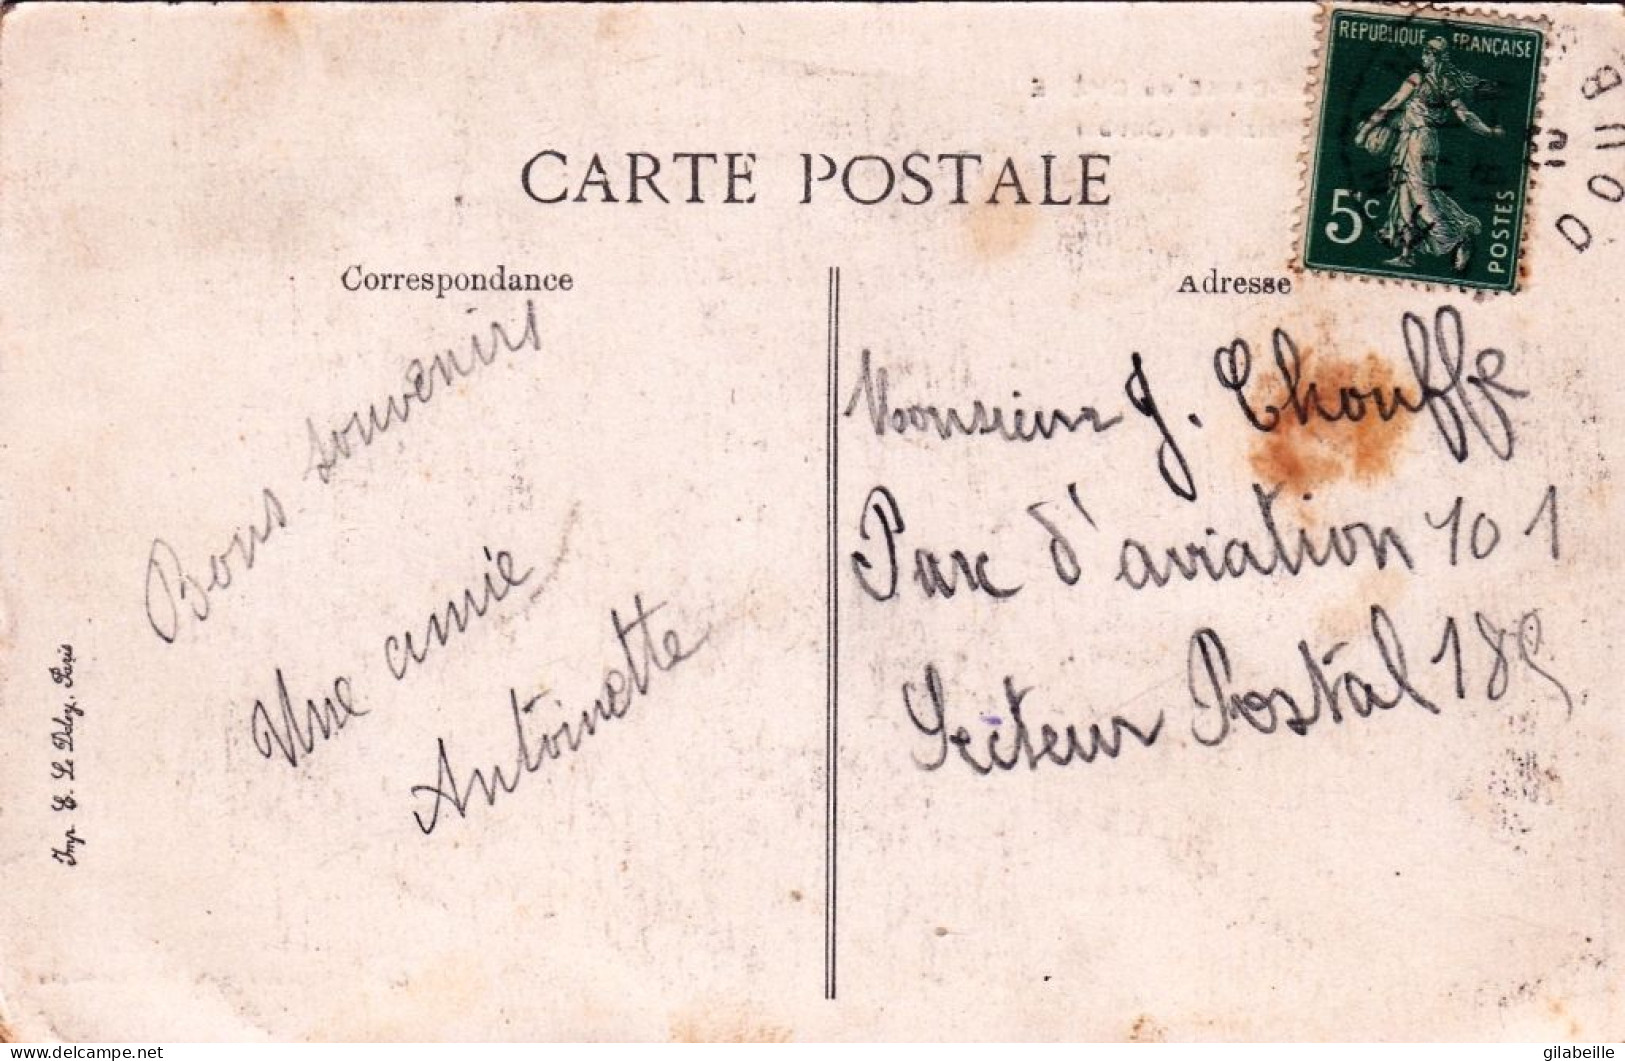 CARTE POSTALE
Correspondance
Bons souvenirs
Une amie
Antoinette
Imp. E. Le Deley, Paris
REPUBLIQUE FRANÇAISE
5c
POSTES
Adresse
Monsieur J. Chouffe
Parc d'aviation 101
Secteur Postal 189
delcampe.net
gilabeille